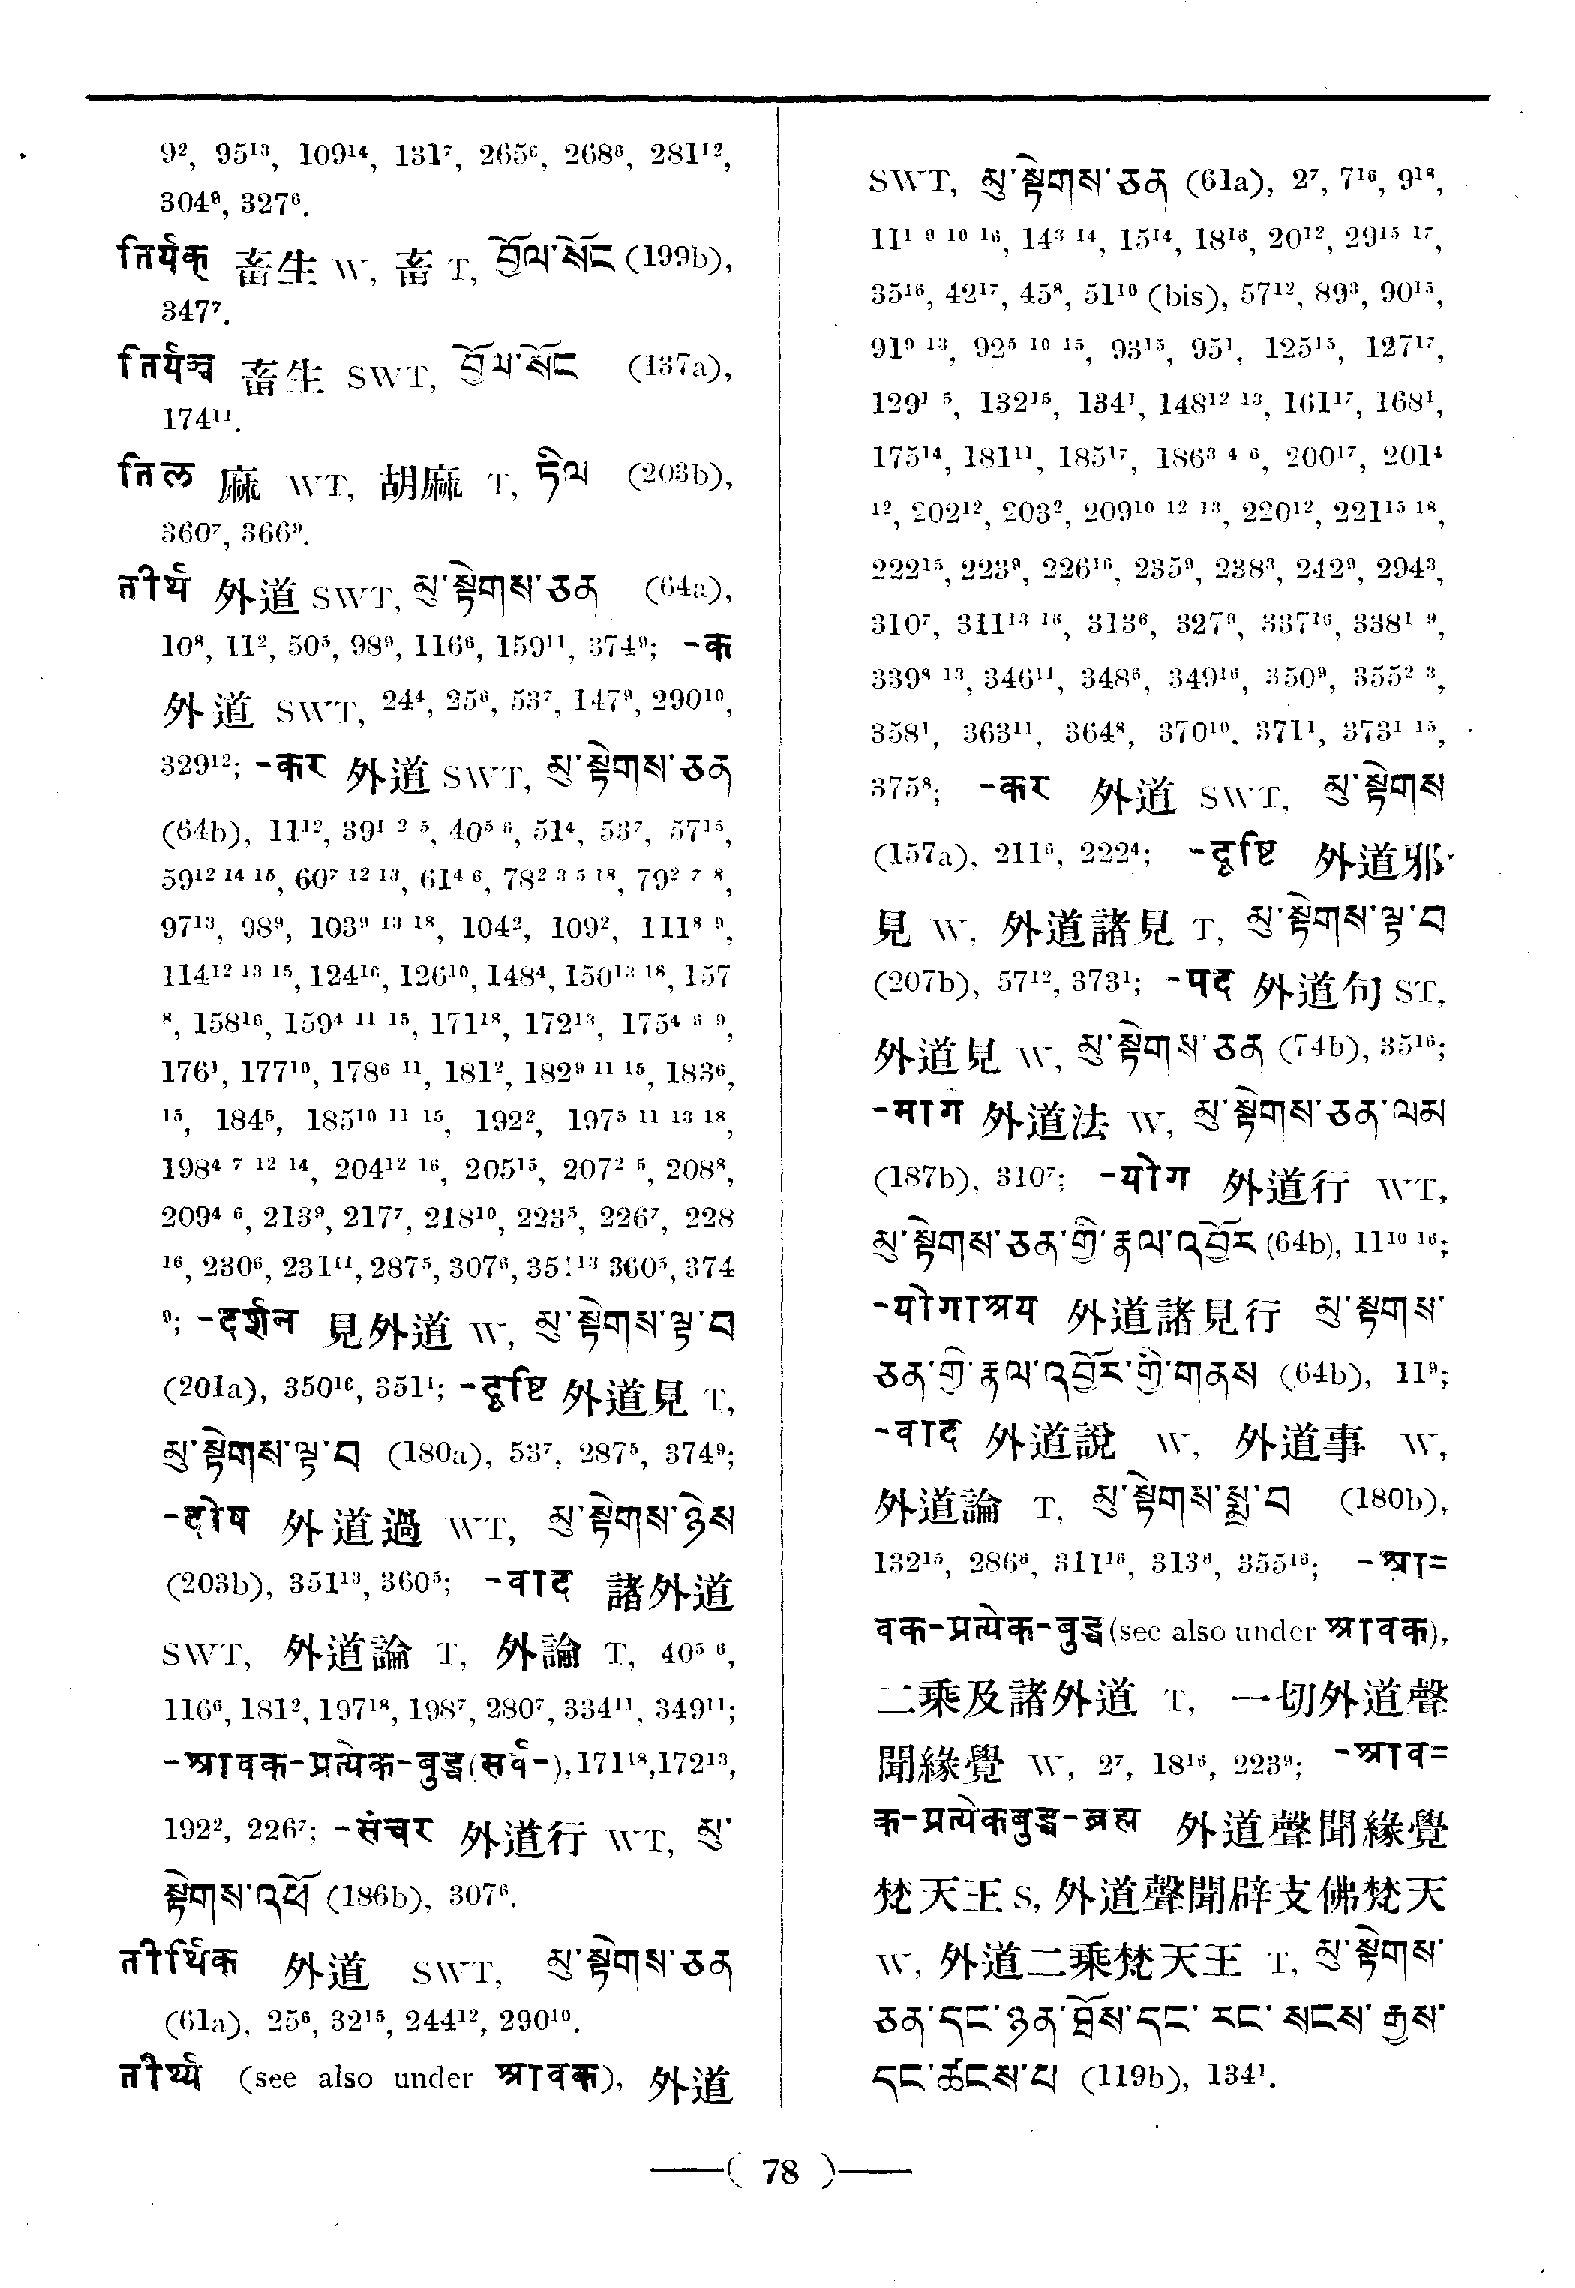 9², 95¹³, 109¹⁴, 131⁷, 265⁶, 268⁸, 281¹²,
304⁹, 327⁶.
तिर्यक् 畜生 W, 畜 T, བྱོལ་སོང (199b),
347⁷.
तिर्यञ्च 畜生 SWT, བྱོལ་སོང (137a),
174¹¹.
तिल 麻 WT, 胡麻 T, ཏིལ (203b),
360⁷, 366⁹.
तीर्थ 外道 SWT, མུ་སྟེགས་ཅན (64a),
10⁸, 11², 50⁵, 98⁹, 116⁶, 159¹¹, 374⁹; -क
外道 SWT, 24⁴, 25⁶, 53⁷, 147⁹, 290¹⁰,
329¹²; -कर 外道 SWT, མུ་སྟེགས་ཅན
(64b), 11¹², 39¹ ² ⁵, 40⁵ ⁶, 51⁴, 53⁷, 57¹⁵,
59¹² ¹⁴ ¹⁵, 60⁷ ¹² ¹³, 61⁴ ⁶, 78² ³ ⁵ ¹⁸, 79² ⁷ ⁸,
97¹³, 98⁹, 103⁹ ¹³ ¹⁸, 104², 109², 111⁸ ⁹,
114¹² ¹³ ¹⁵, 124¹⁶, 126¹⁰, 148⁴, 150¹³ ¹⁸, 157
⁸, 158¹⁶, 159⁴ ¹¹ ¹⁵, 171¹⁸, 172¹³, 175⁴ ⁶ ⁹,
176¹, 177¹⁰, 178⁶ ¹¹, 181², 182⁹ ¹¹ ¹⁵, 183⁶,
¹⁵, 184⁵, 185¹⁰ ¹¹ ¹⁵, 192², 197⁵ ¹¹ ¹³ ¹⁸,
198⁴ ⁷ ¹² ¹⁴, 204¹² ¹⁶, 205¹⁵, 207² ⁵, 208⁸,
209⁴ ⁶, 213⁹, 217⁷, 218¹⁰, 223⁵, 226⁷, 228
¹⁶, 230⁶, 231¹¹, 287⁵, 307⁶, 351¹³ 360⁵, 374
⁹; -दर्शन 見外道 W, མུ་སྟེགས་ལྟ་བ
(201a), 350¹⁶, 351¹; -दृष्टि 外道見 T,
མུ་སྟེགས་ལྟ་བ (180a), 53⁷, 287⁵, 374⁹;
-दोष 外道過 WT, མུ་སྟེགས་ཉེས
(203b), 351¹³, 360⁵; -वाद 諸外道
SWT, 外道論 T, 外論 T, 40⁵ ⁶,
116⁶, 181², 197¹⁸, 198⁷, 280⁷, 334¹¹, 349¹¹;
-श्रावक-प्रत्येक-बुद्ध(सर्व-), 171¹⁸, 172¹³,
192², 226⁷; -संचर 外道行 WT, མུ་
སྟེགས་འཕོ (186b), 307⁶.
तीर्थिक 外道 SWT, མུ་སྟེགས་ཅན
(61a), 25⁶, 32¹⁵, 244¹², 290¹⁰.
तीर्थ्य (see also under श्रावक), 外道
SWT, མུ་སྟེགས་ཅན (61a), 2⁷, 7¹⁶, 9¹⁸,
11¹ ⁹ ¹⁰ ¹⁶, 14³ ¹⁴, 15¹⁴, 18¹⁶, 20¹², 29¹⁵ ¹⁷,
35¹⁶, 42¹⁷, 45⁸, 51¹⁰ (bis), 57¹², 89³, 90¹⁵,
91⁹ ¹³, 92⁵ ¹⁰ ¹⁵, 93¹⁵, 95¹, 125¹⁵, 127¹⁷,
129¹ ⁵, 132¹⁵, 134¹, 148¹² ¹³, 161¹⁷, 168¹,
175¹⁴, 181¹¹, 185¹⁷, 186³ ⁴ ⁶, 200¹⁷, 201⁴
¹², 202¹², 203², 209¹⁰ ¹² ¹³, 220¹², 221¹⁵ ¹⁸,
222¹⁵, 223⁹, 226¹⁶, 235⁹, 238³, 242⁹, 294³,
310⁷, 311¹³ ¹⁶, 313⁶, 327⁹, 337¹⁶, 338¹ ⁹,
339⁸ ¹³, 346¹¹, 348⁶, 349¹⁶, 350⁹, 355² ³,
358¹, 363¹¹, 364⁸, 370¹⁰, 371¹, 373¹ ¹⁵,
375⁸; -कर 外道 SWT, མུ་སྟེགས
(157a), 211⁵, 222⁴; -दृष्टि 外道邪
見 W, 外道諸見 T, མུ་སྟེགས་ལྟ་བ
(207b), 57¹², 373¹; -पद 外道句 ST,
外道見 W, མུ་སྟེགས་ཅན (74b), 35¹⁶;
-मार्ग 外道法 W, མུ་སྟེགས་ཅན་ལམ
(187b), 310⁷; -योग 外道行 WT,
མུ་སྟེགས་ཅན་གྱི་རྣལ་འབྱོར (64b), 11¹⁰ ¹⁶;
-योगाश्रय 外道諸見行 མུ་སྟགས་
ཅན་གྱི་རྣལ་འབྱོར་གྱི་གནས (64b), 11⁹;
-वाद 外道說 W, 外道事 W,
外道論 T, མུ་སྟེགས་སྨྲ་བ (180b),
132¹⁵, 286⁸, 311¹⁶, 313⁸, 355¹⁶; -श्रा=
वक-प्रत्येक-बुद्ध(see also under श्रावक),
二乘及諸外道 T, 一切外道聲
聞緣覺 W, 2⁷, 18¹⁶, 223⁹; -श्राव=
क-प्रत्येकबुद्ध-ब्रह्म 外道聲聞緣覺
梵天王 S, 外道聲聞辟支佛梵天
W, 外道二乘梵天王 T, མུ་སྟེགས་
ཅན་དང་ཉན་ཐོས་དང་ རང་ སངས་ རྒྱས་
དང་ཚངས་པ (119b), 134¹.
( 78 )